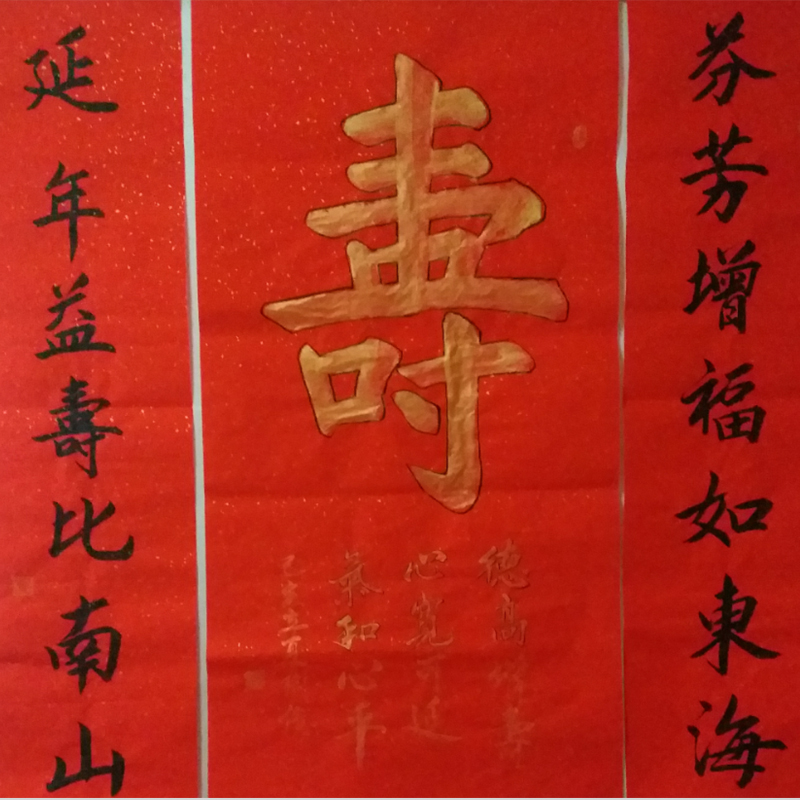 芬芳增福如東海
壽
德高增壽
心寬可延
氣和心平
己亥立夏
延年益壽比南山